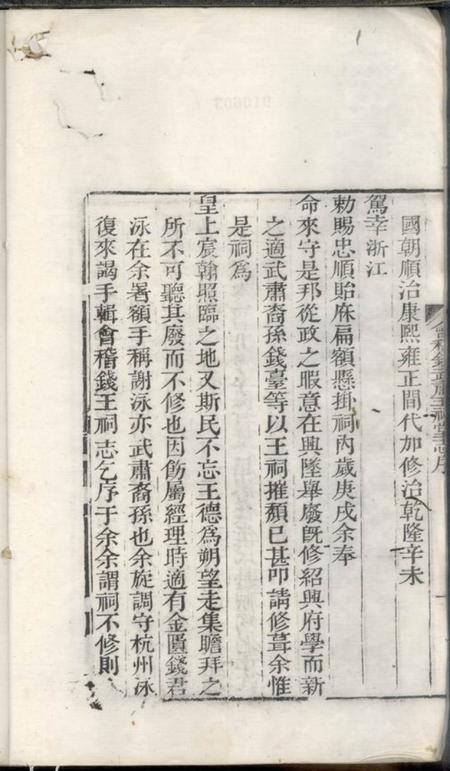 會稽錢武肅王祠堂志序
國朝順治康熙雍正間代加修治乾隆辛未
駕幸浙江
勅賜忠順貽庥扁額懸掛祠內歲庚戌余奉
命來守是邦從政之暇意在興墜舉廢旣修紹興府學而新
之適武肅裔孫錢臺等以王祠摧頹已甚叩請修葺余惟
是祠爲
皇上宸翰照臨之地又斯民不忘王德爲朔望走集瞻拜之
所不可聽其廢而不修也因飭屬經理時適有金匱錢君
泳在余署額手稱謝泳亦武肅裔孫也余旋調守杭州泳
復來謁手輯會稽錢王祠志乞序于余余謂祠不修則